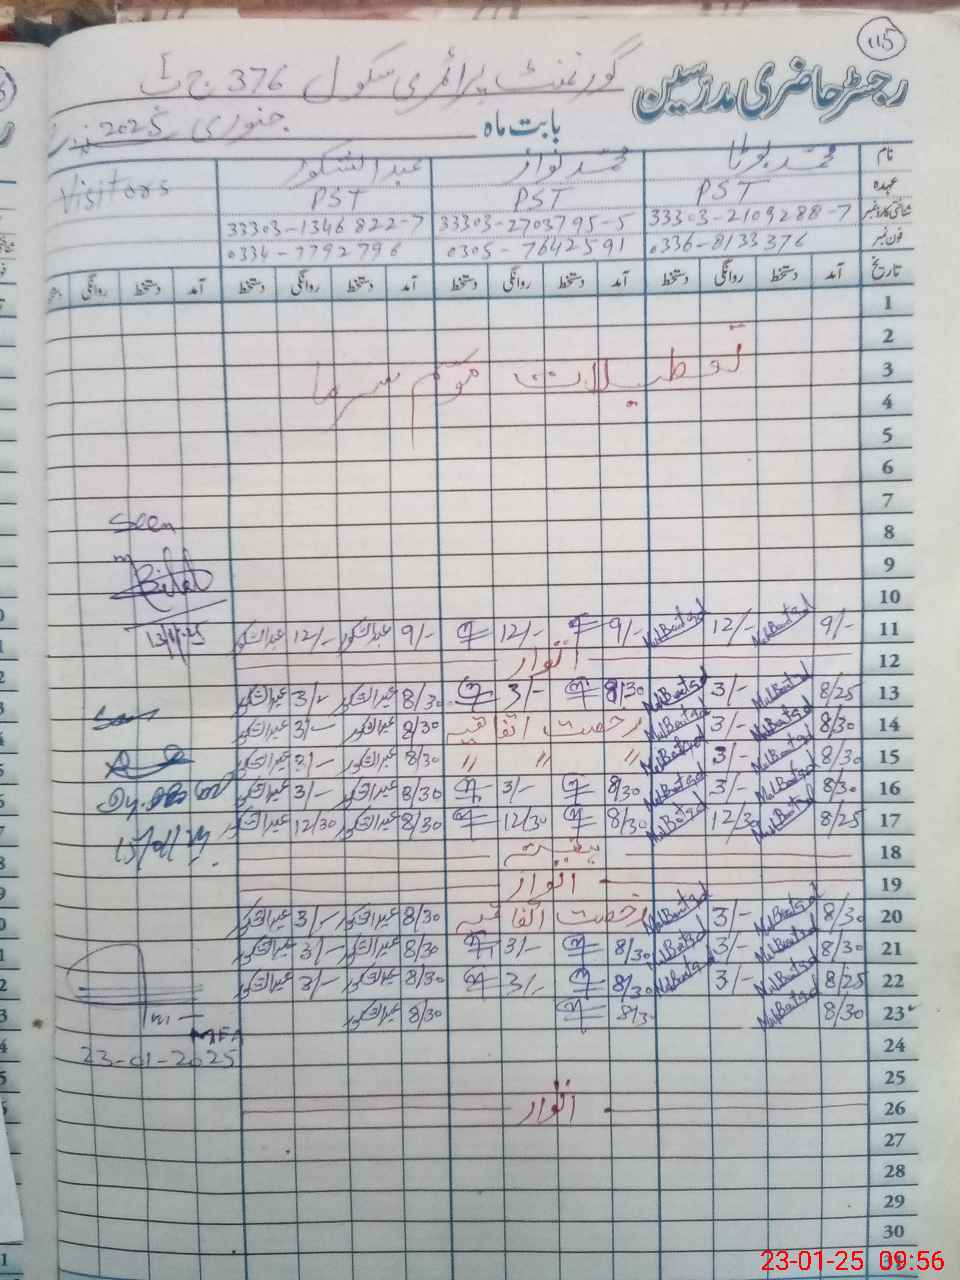 115
رجسٹر حاضری مدرسین
گورنمنٹ پرائمری سکول 376 ج ب I
بابت ماہ جنوری 2025
نام محمد بوٹا محمد نواز عبدالشکور Visitors
عہدہ PST PST PST
شناختی کارڈ نمبر 33303-2109288-7 33303-2703795-5 33303-1346822-7
فون نمبر 0336-8133376 0305-7642591 0334-7792796
تاریخ آمد دستخط روانگی دستخط آمد دستخط روانگی دستخط آمد دستخط روانگی دستخط آمد دستخط روانگی
1
2
3 تعطیلات موسم سرما
4
5
6
7
8 Seen
9
10 Bilal
11 9/- 12/- 9/- 12/- 9/- عبدالشکور 12/- عبدالشکور
12 اتوار
13 8/25 3/- 8/30 3/- 8/30 عبدالشکور 3/- عبدالشکور
14 8/30 3/- رخصت اتفاقیہ 8/30 عبدالشکور 3/- عبدالشکور
15 8/30 3/- " " " 8/30 عبدالشکور 3/- عبدالشکور
16 8/30 3/- 8/30 3/- 8/30 عبدالشکور 3/- عبدالشکور
17 8/25 12/30 8/30 12/30 8/30 عبدالشکور 12/30 عبدالشکور
18
19 اتوار
20 8/30 3/- رخصت اتفاقیہ 8/30 عبدالشکور 3/- عبدالشکور
21 8/30 3/- 8/30 3/- 8/30 عبدالشکور 3/- عبدالشکور
22 8/25 3/- 8/30 3/- 8/30 عبدالشکور 3/- عبدالشکور
23 8/30 8/30 8/30 عبدالشکور
24 23-01-2025
25
26 اتوار
27
28
29
30
31
23-01-25 09:56